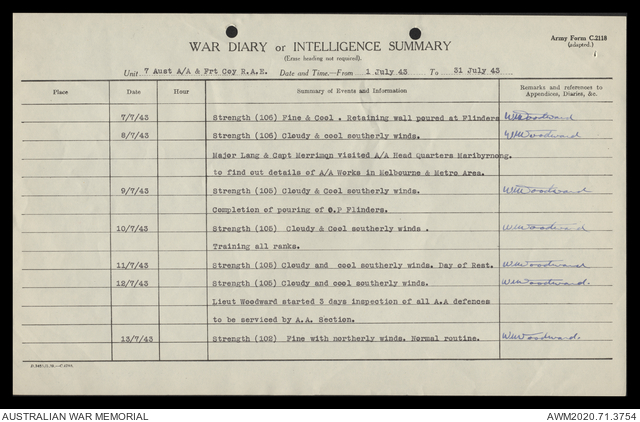 Army Form C.2118
(adapted.)
WAR DIARY or INTELLIGENCE SUMMARY
(Erase heading not required).
Unit 7 Aust A/A & Frt Coy R.A.E. Date and Time.—From 1 July 43 To 31 July 43
Place Date Hour Summary of Events and Information Remarks and references to Appendices, Diaries, &c.
7/7/43 Strength (105) Fine & Cool . Retaining wall poured at Flinders WMWoodward
8/7/43 Strength (105) Cloudy & cool southerly winds. WMWoodward
Major Lang & Capt Merriman visited A/A Head Quarters Maribyrnong.
to find out details of A/A Works in Melbourne & Metro Area.
9/7/43 Strength (105) Cloudy & cool southerly winds. WMWoodward
Completion of pouring of O.P Flinders.
10/7/43 Strength (105) Cloudy & Cool southerly winds . WMWoodward
Training all ranks.
11/7/43 Strength (105) Cloudy and cool southerly winds. Day of Rest. WMWoodward
12/7/43 Strength (105) Cloudy and cool southerly winds. WMWoodward.
Lieut Woodward started 3 days inspection of all A.A defences
to be serviced by A.A. Section.
13/7/43 Strength (102) Fine with northerly winds. Normal routine. WMWoodward.
AUSTRALIAN WAR MEMORIAL AWM2020.71.3754